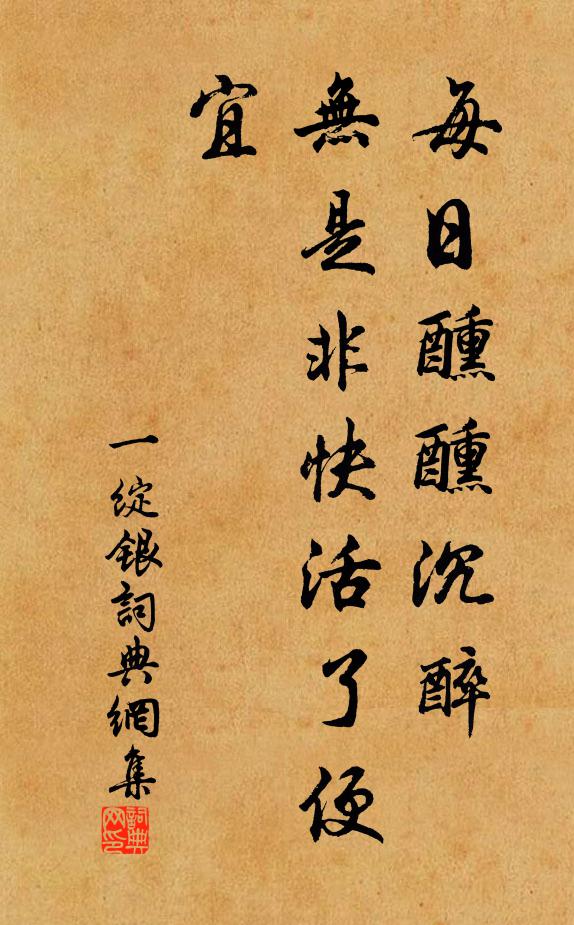 每日醺醺沉醉
無是非快活了便
宜
一綻銀詞典網集
詞典
网印